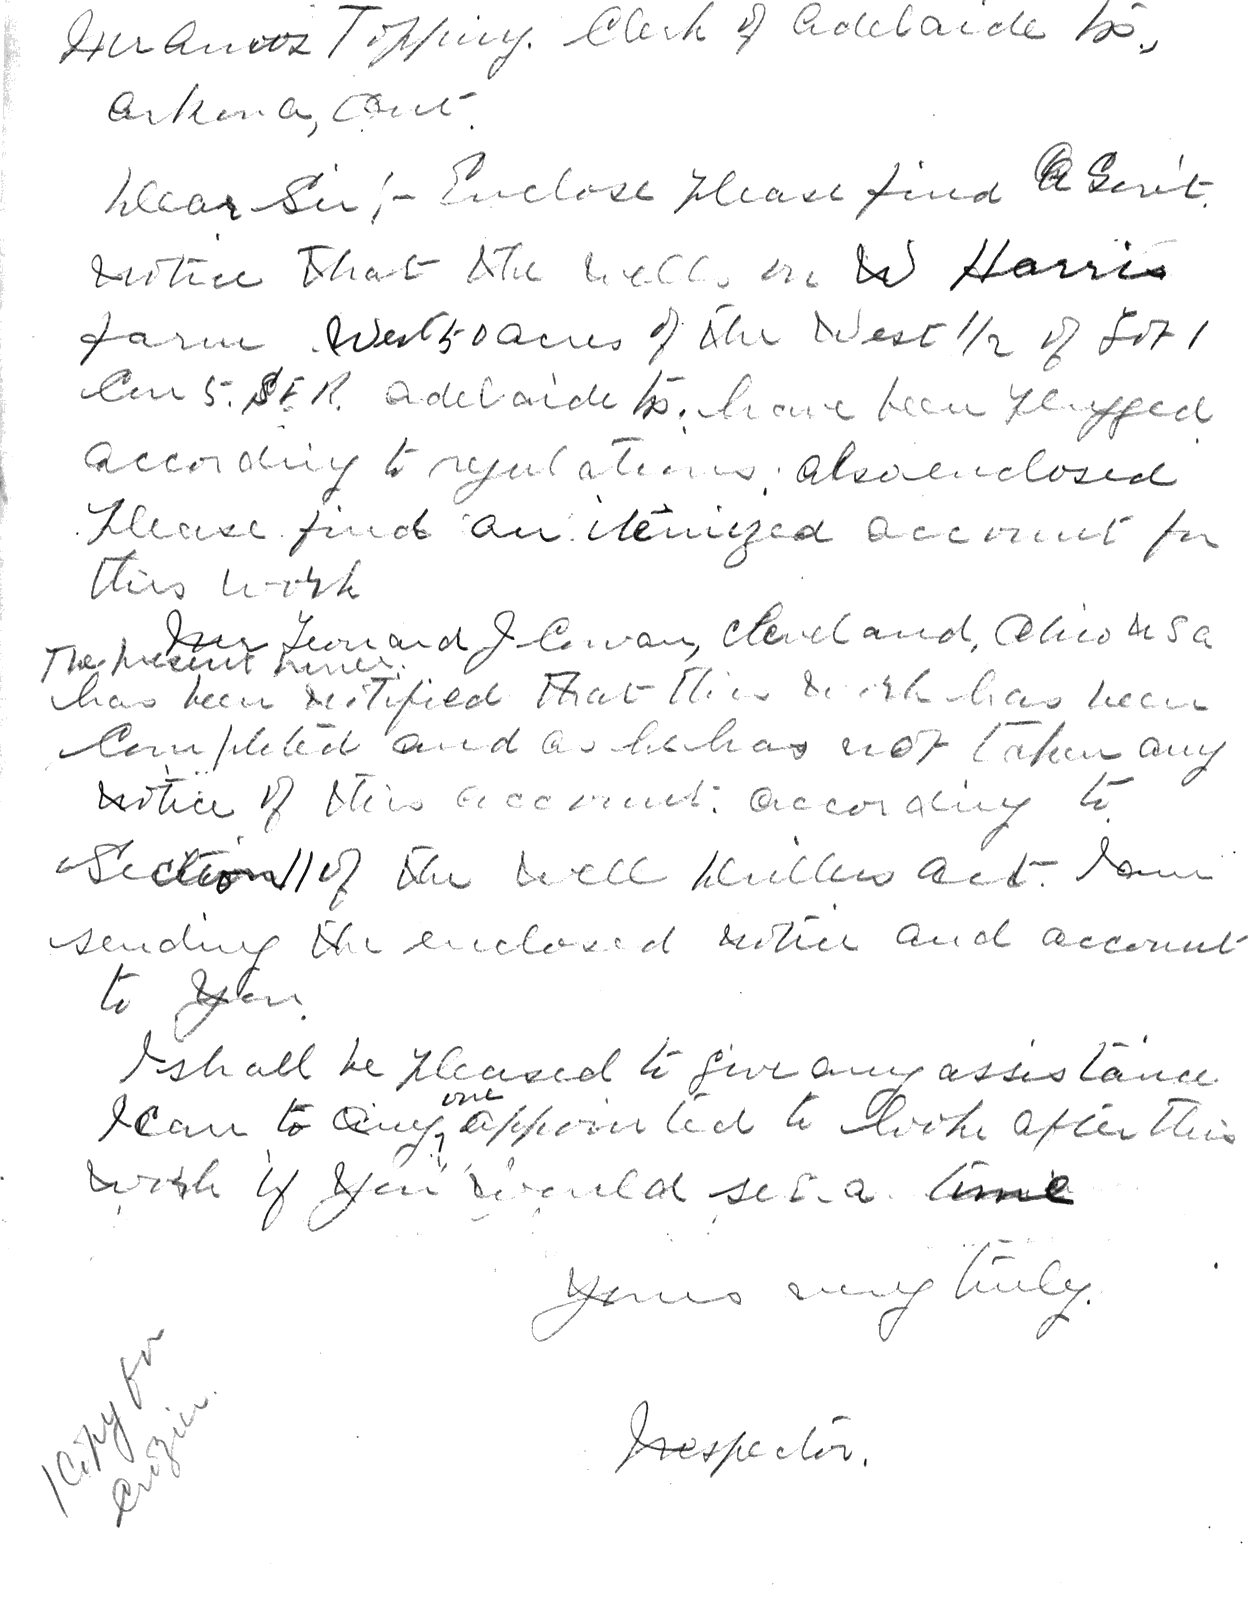 Mr Amos Topping. Clerk of Adelaide Tp.,
Arkona, Ont.
Dear Sir;- Enclose please find a Gov't.
notice that the wells on W Harris
farm West 50 acres of the West 1/2 of Lot 1
Con 5. S.E.R. Adelaide Tp. have been plugged
according to regulations, also enclosed
please find an itemized account for
this work
Mr Leonard J Cowan, Cleveland, Ohio U S A
The present owner.
has been notified that this work has been
completed and as he has not taken any
notice of this account. according to
Section 11 of the Well Drillers Act. I am
sending the enclosed notice and account
to you.
I shall be pleased to give any assistance
I can to any one appointed to look after this
work if you would set a time
Yours very truly.
Inspector.
1 Copy for
Crozier.